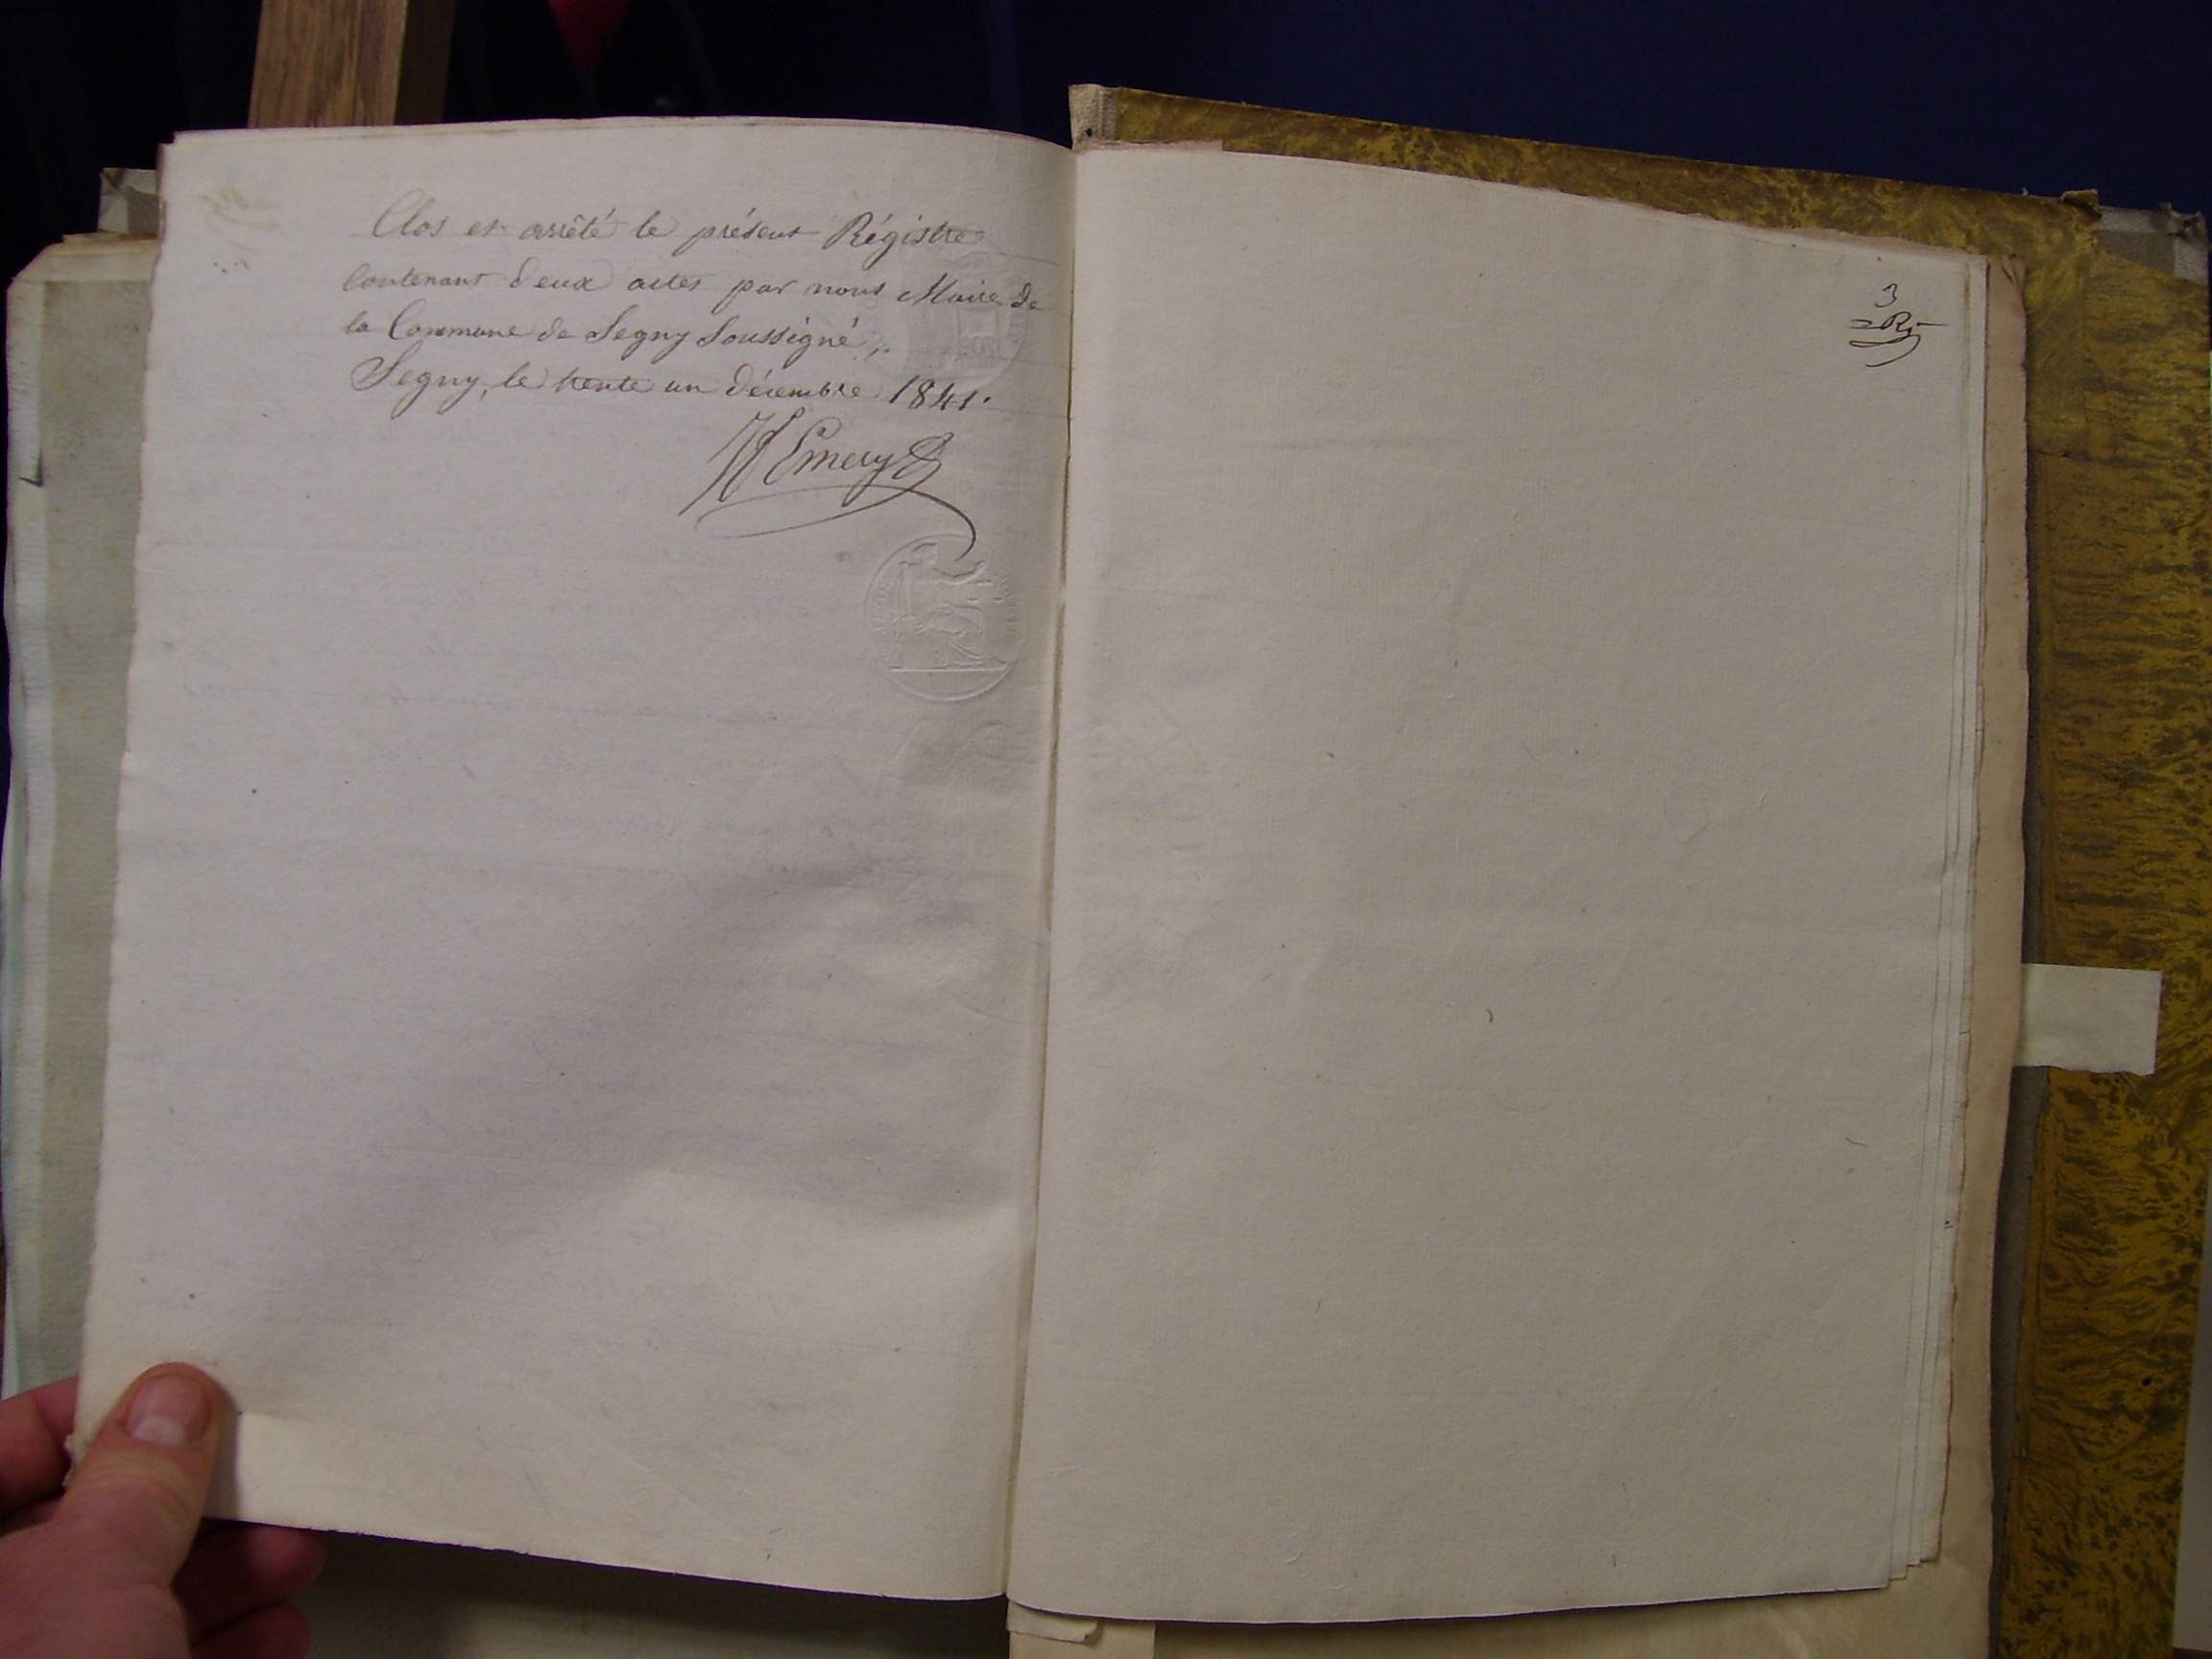 Clos et arrêté le présent Régistre
Contenant deux actes par nous Maire de
la Commune de Segny Soussigné,
Segny, le trente un décembre 1841.
Emery
3